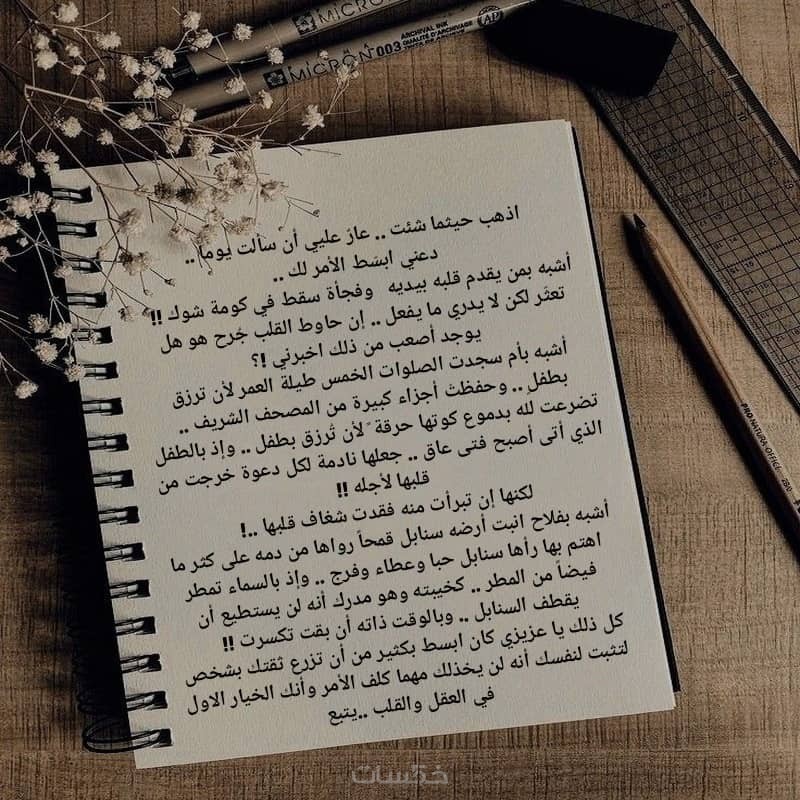 MICRON
ARCHIVAL INK
MICRON 003 QUALITÉ D'ARCHIVAGE
AP
اذهب حيثما شئت .. عارٌ علیي أن سألت يوماً ..
دعني ابسَط الأمر لك ..
أشبه بمن يقدم قلبه بيديه وفجأة سقط في كومة شوك !!
تعثَر لكن لا يدري ما يفعل .. إن حاوط القلب جُرح هو هل
يوجد أصعب من ذلك اخبرني !؟
أشبه بأم سجدت الصلوات الخمس طيلة العمر لأن ترزق
بطفلٍ .. وحفظتْ أجزاء كبيرة من المصحف الشريف ..
تضرعت للّٰه بدموع كوتها حرقة ً لأن تُرزق بطفل .. وإذ بالطفل
الذي أتى أصبح فتى عاق .. جعلها نادمة لكل دعوة خرجت من
قلبها لأجله !!
لكنها إن تبرأت منه فقدت شغاف قلبها ..!
أشبه بفلاح انبت أرضه سنابل قمحاً رواها من دمه على كثر ما
اهتم بها رأها سنابل حبا وعطاء وفرج .. وإذ بالسماء تمطر
فيضاً من المطر .. كخيبته وهو مدرك أنه لن يستطيع أن
يقطف السنابل .. وبالوقت ذاته أن بقت تكسرت !!
كل ذلك يا عزيزي كان ابسط بكثير من أن تزرع ثقتك بشخص
لتثبت لنفسك أنه لن يخذلك مهما كلف الأمر وأنك الخيار الاول
في العقل والقلب ..يتبع
PRO NATURA·OFFICE
خمسات